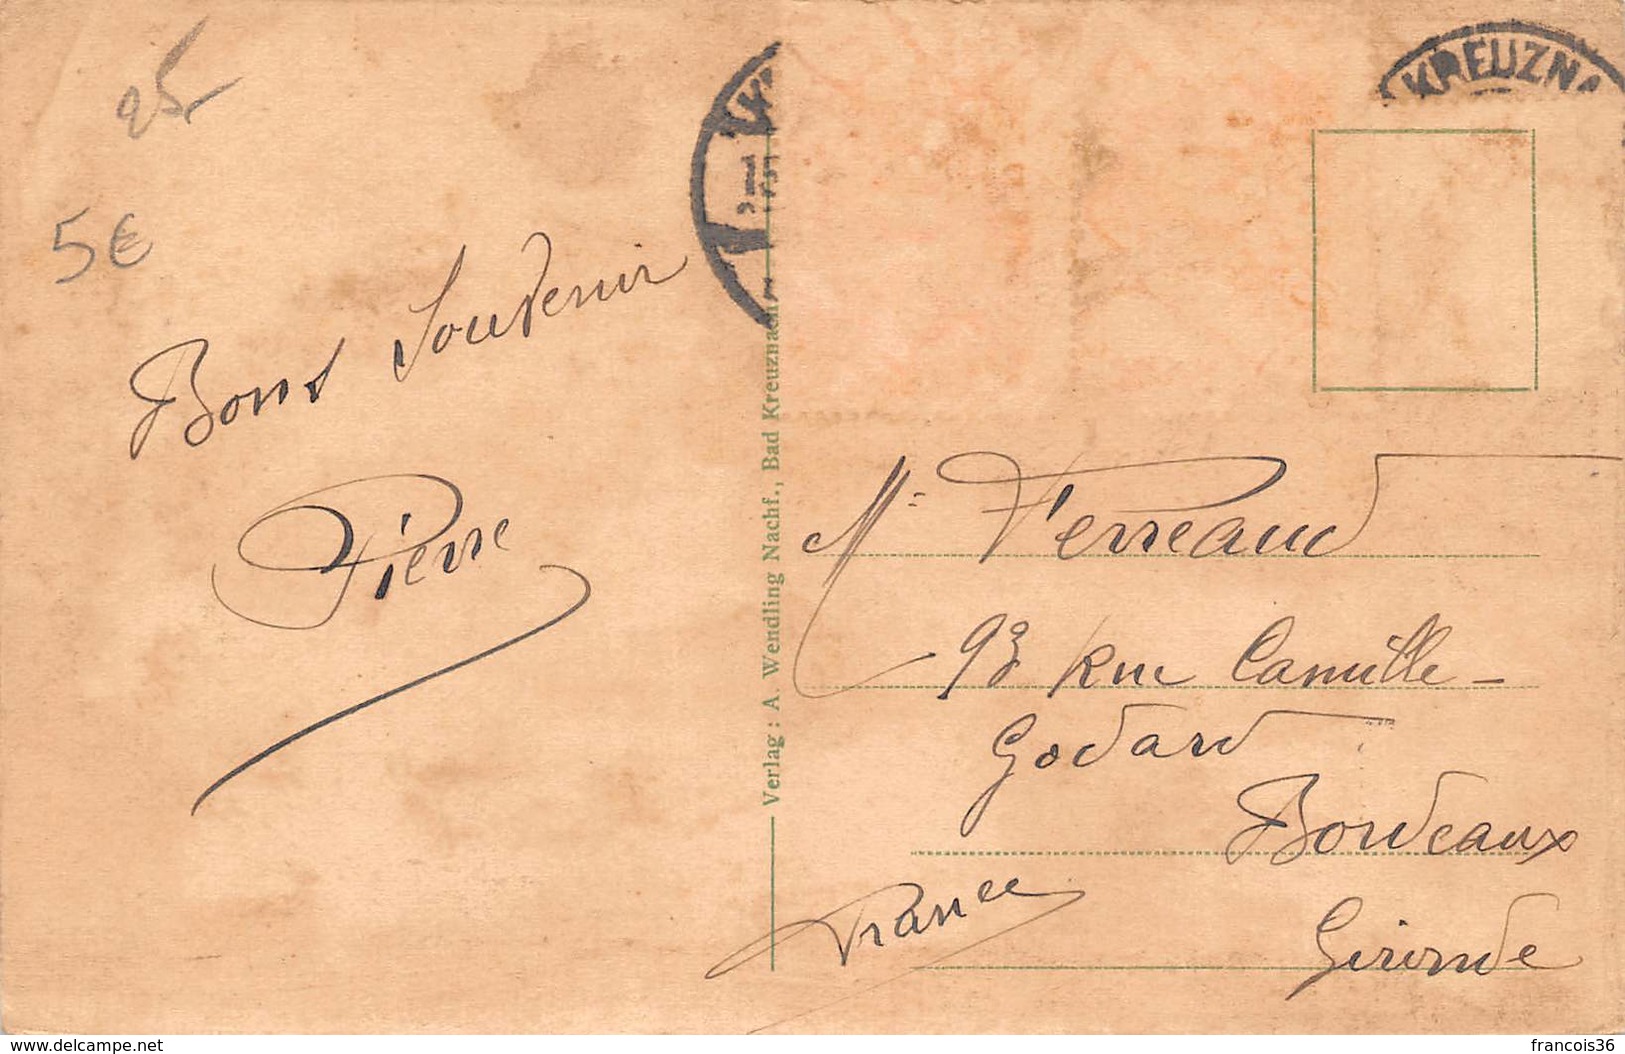 25
5€
Bons Souvenir
Pierre
KREUZNA
Verlag : A. Wendling Nachf., Bad Kreuznach
M. Ferreaud
93 Rue Camille-
Godard
Bordeaux
Gironde
France
www.delcampe.net
francois36